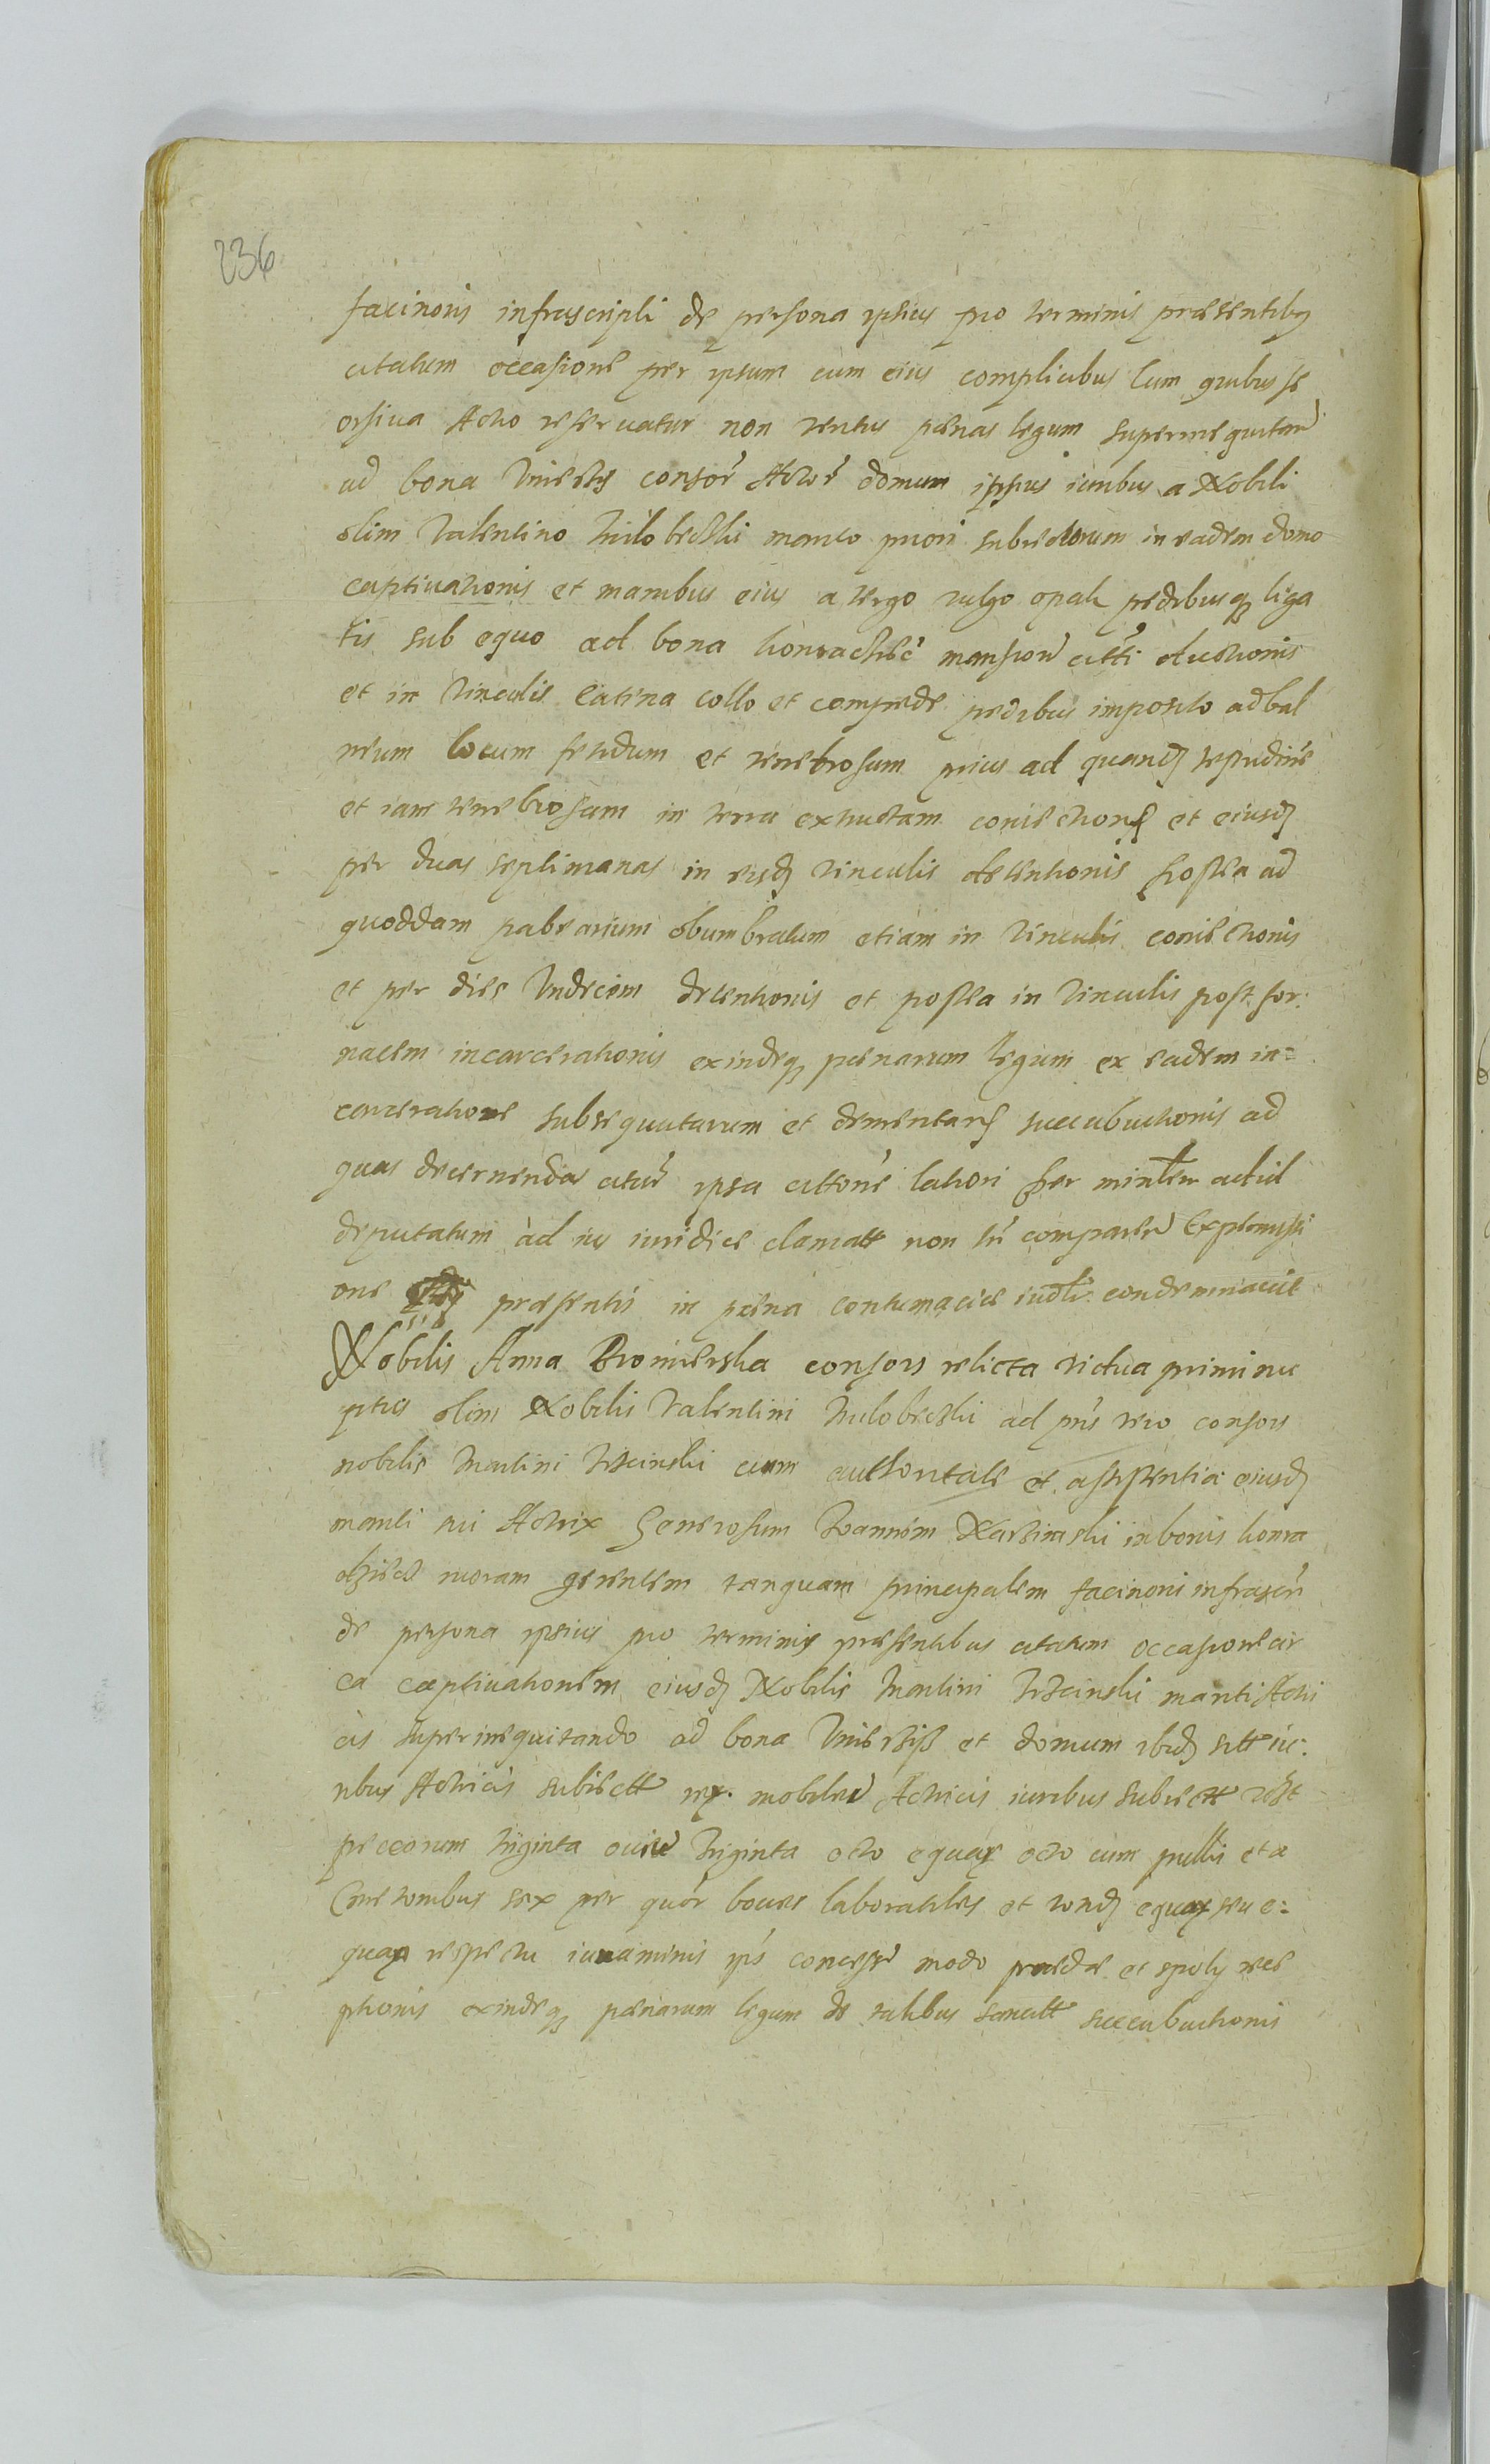 236
facinoris infrascripti de persona ipsius pro terminis præsentibq
citatum occasione per ipsum cum eius complicibus cum quibus se
orsiua Actio reseruatur non veritus pœnas legum superinequitan̄
ad bona consor̄ Actor̄ domum ipsius iuribus a Nobili
olim Valentino Milobedzki marito priori subiectorum in eadem domo
captiuationis et manibus eius a tergo vulgo opak pedibusq liga
tis sub equo ad bona mansion̄ citti ductionis
et in vinculis catena collo et compede pedibus imposito ad bal
neum locum fetidum et tenebrosum prius ad quand testudine
et iam tenebrosam in terra extructam coniection et eiusd
per duas septimanas in eisd vinculis detentionis postea ad
quoddam palearium obumbratum etiam in vinculis coniectionis
et per dies Vndecim detentionis et postea in vinculis post for:
nacem incarcerationis exindeq pœnarum legum ex eadem in=
carceratione subsequutarum et succubuitionis ad
quas decernendas citat ipsa cittone latiori per mintlem ad id
deputatum ad ius iuridice clamatt non sn̄ comparen̄ Ex promissi
one præsentis in pœna contumaciæ iudtr condemnauit
Nobilis Anna Bromierska consors relicta vidua primi nu
ptus olim Nobilis Valentini Milobedzki ad pn̄s vero consors
nobilis Martini cum authoritate et assistentia eiusd
mariti sui Actrix Generosum Ioannem in bonis konra
moram gerentem tanquam principalem facinoris infrascr̄
de persona ipsius pro terminis præsentibus citatum occasione cir
ca captiuationem eiusd Nobilis Martini mariti Actri
cis superinequitando ad bona et domum ibid sitt iu:
ribus Actricis subiectt rex. mobiliu Actricis iuribus subiectt
pecorum triginta ouiu triginta octo equax octo cum pullis et a
sex per quor boues laboratiles et equax seu e:
quax respectu iuuaminis ips concess modo prædæ et spolÿ rece
ptionis exindeq pœnarum legum de talibus sancitt succubuitionis